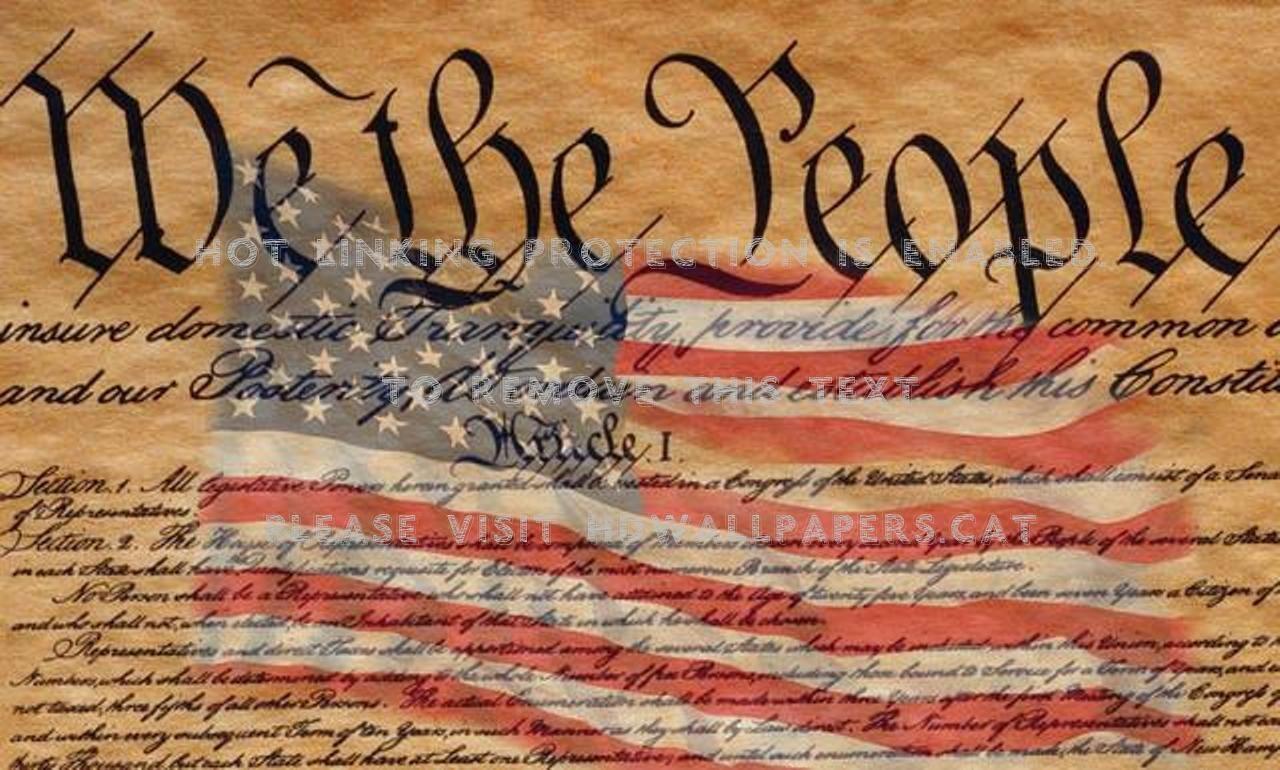 We the People
HOT LINKING PROTECTION IS ENABLED.
insure domestic Tranquility, provide for the common
and our Posterity, do ordain and establish this Constit
TO REMOVE THIS TEXT
Article. I.
Section. 1. All legislative Powers herein granted shall be vested in a Congress of the United States, which shall consist of a Sena
of Representatives
PLEASE VISIT HDWALLPAPERS.CAT
Section. 2. The House of Representatives shall be composed of Members chosen every second Year by the People of the several States
in each State shall have Qualifications requisite for Electors of the most numerous Branch of the State Legislature.
No Person shall be a Representative who shall not have attained to the Age of twenty five Years, and been seven Years a Citizen of
and who shall not, when elected, be an Inhabitant of that State in which he shall be chosen.
Representatives and direct Taxes shall be apportioned among the several States which may be included within this Union, according to
Numbers, which shall be determined by adding to the whole Number of free Persons, including those bound to Service for a Term of Years, and
not taxed, three fifths of all other Persons. The actual Enumeration shall be made within three Years after the first Meeting of the Congress
and within every subsequent Term of ten Years, in such Manner as they shall by Law direct. The Number of Representatives shall not
thirty Thousand, but each State shall have at Least one Representative; and until such enumeration shall be made, the State of New Hamp